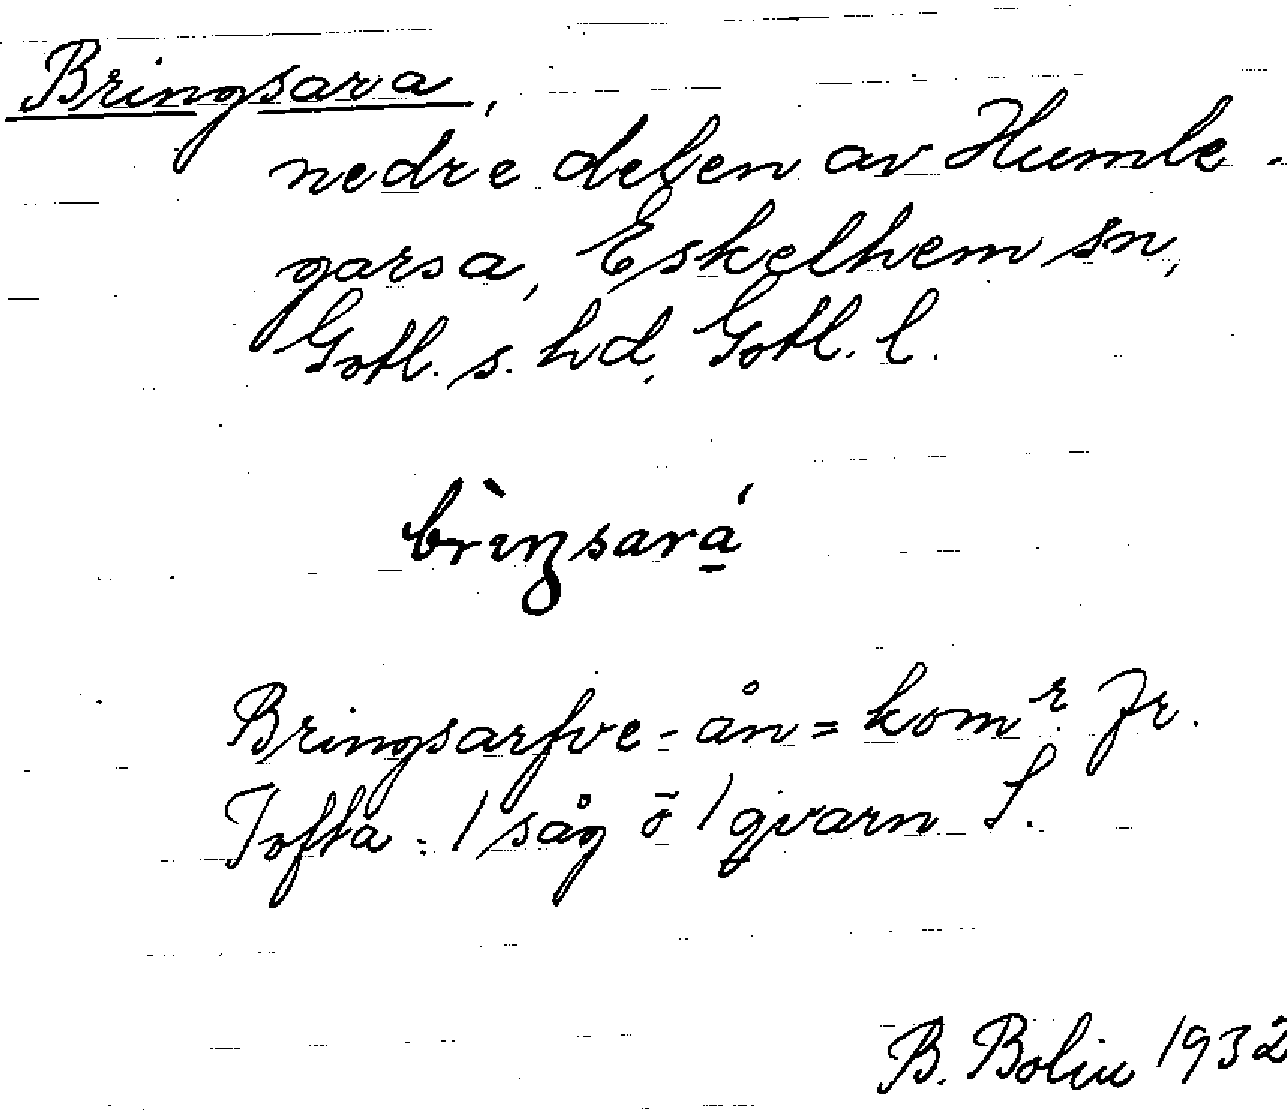 Bringsara,
nedre delen av Humle-
garsa, Eskelhem sn,
Gotl. s. hd, Gotl. l.
brìŋsará̱
Bringsarfve-ån = komr. fr.
Tofta. 1 såg õ 1 qvarn S.
B. Bolin 1932